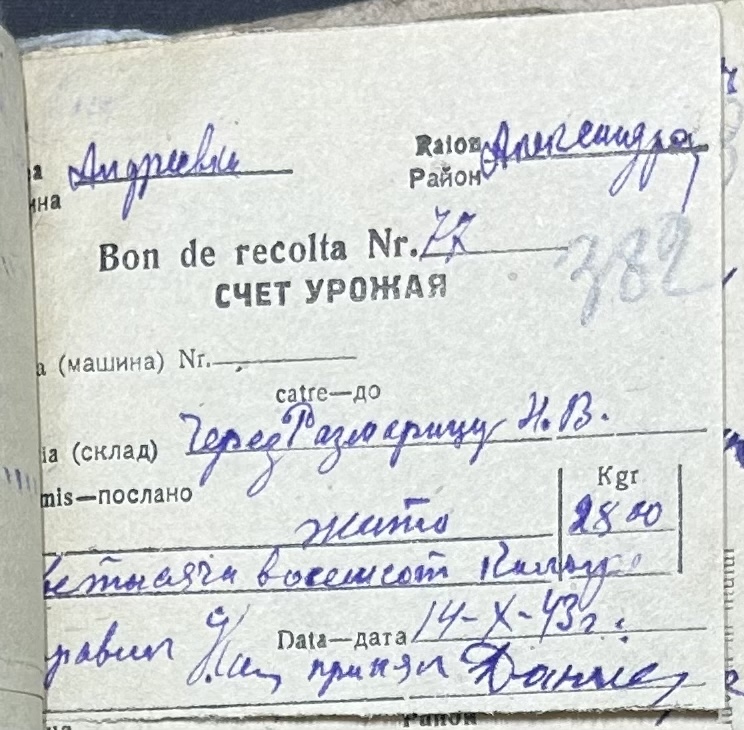 а Андреевка Raion Александра
ина Район
Bon de recolta Nr. 77
382
СЧЕТ УРОЖАЯ
а (машина) Nr.
catre—до
ia (склад) Через Размарицу Н. В.
mis—послано Kgr
жито 2800
тысячи восемсот Килогр
Data—дата 14-X-43г.
равил принял
Район